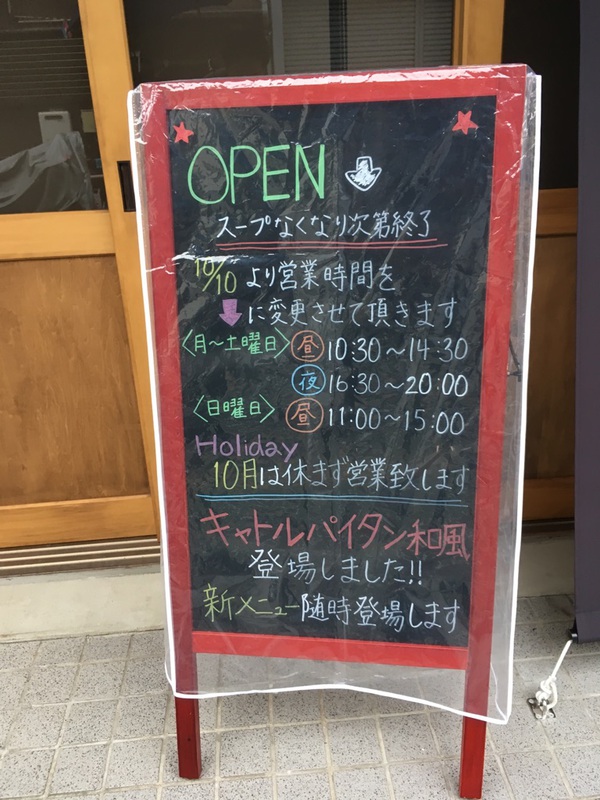 OPEN
スープなくなり次第終了
10/10 より営業時間を
に変更させて頂きます
〈月～土曜日〉 昼 10:30～14:30
夜 16:30～20:00
〈日曜日〉 昼 11:00～15:00
Holiday
10月は休まず営業致します
キャトルパイタン和風
登場しました!!
新メニュー随時登場します